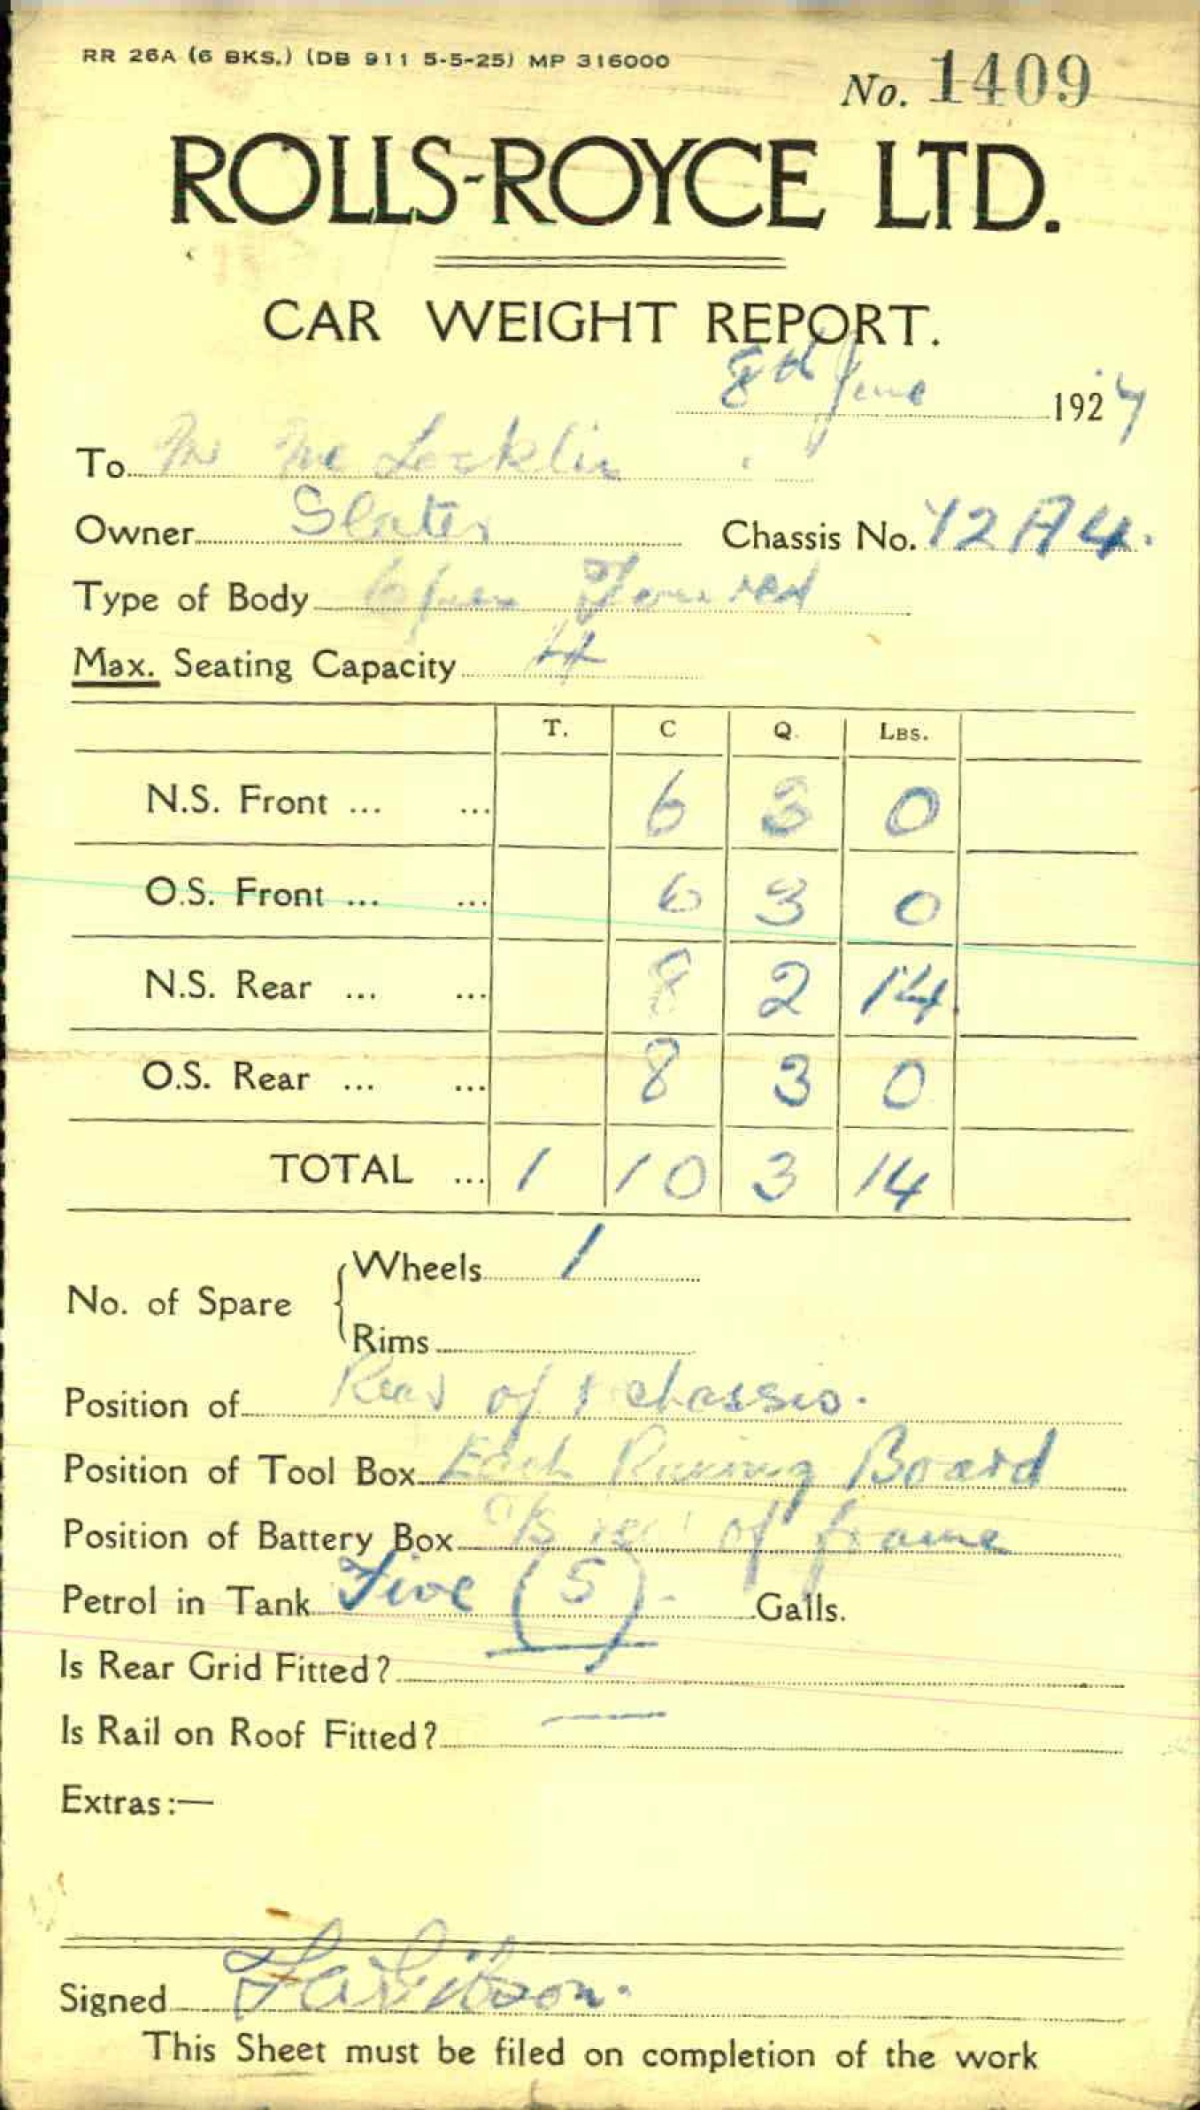 RR 26A (6 BKS.) (DB 911 5-5-25) MP 316000
No. 1409
ROLLS-ROYCE LTD.
CAR WEIGHT REPORT.
8th June 1927
To
Owner Slater Chassis No. 72A4.
Type of Body Open
Max. Seating Capacity 4
T. C Q. LBS.
N.S. Front ... ... 6 3 0
O.S. Front ... ... 6 3 0
N.S. Rear ... ... 8 2 14
O.S. Rear ... ... 8 3 0
TOTAL ... 1 10 3 14
Wheels 1
No. of Spare
Rims
Position of Rear of chassis.
Position of Tool Box Each Running Board
Position of Battery Box of frame
Petrol in Tank Five (5) Galls.
Is Rear Grid Fitted?
Is Rail on Roof Fitted? —
Extras:—
Signed
This Sheet must be filed on completion of the work